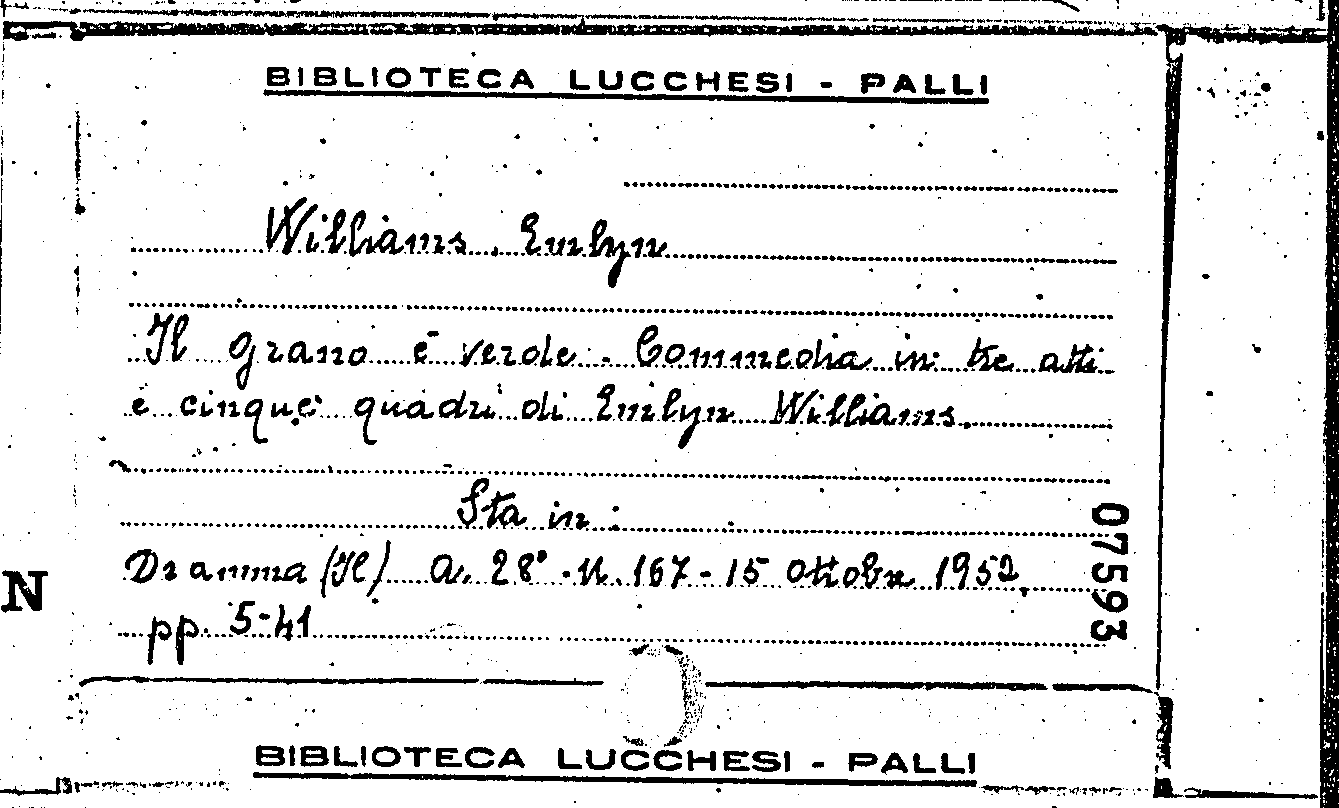 BIBLIOTECA LUCCHESI - PALLI
Williams, Emlyn
Il grano è verde. Commedia in tre atti
e cinque quadri di Emlyn Williams.
Sta in:
Dramma (Il) A. 28° - N. 167 - 15 Ottobre 1952,
pp. 5-41
07593
N
BIBLIOTECA LUCCHESI - PALLI